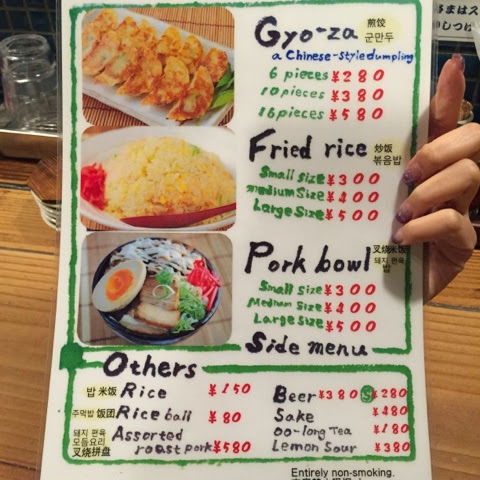 Gyo-za 煎饺
군만두
a Chinese-style dumpling
6 pieces ¥280
10 pieces ¥380
16 pieces ¥580
Fried rice 炒饭
볶음밥
Small size ¥300
medium Size ¥400
Large Size ¥500
Pork bowl 叉烧米饭
돼지 편육
밥
Small size ¥300
Medium size ¥400
Large size ¥500
Side menu
Others
밥 米饭 Rice ¥150
주먹밥 饭团 Rice ball ¥80
돼지 편육
모듬요리
叉烧拼盘
Assorted
roast pork ¥580
Beer ¥380 S ¥280
Sake ¥480
oo-long Tea ¥180
Lemon Sour ¥380
Entirely non-smoking.